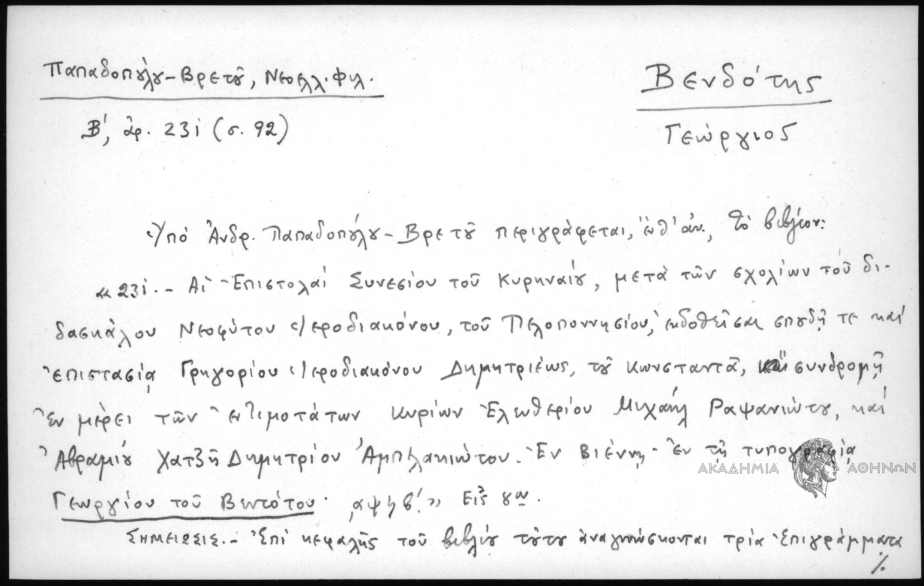 Παπαδοπούλου-Βρετοῦ, Νεοελλ. Φιλ.
Βενδότης
Β', ἀρ. 231 (σ. 92)
Γεώργιος
Ὑπὸ Ἀνδρ. Παπαδοπούλου-Βρετοῦ περιγράφεται, ἔνθ' ἀν., τὸ βιβλίον:
«231.- Αἱ Ἐπιστολαὶ Συνεσίου τοῦ Κυρηναίου, μετὰ τῶν σχολίων τοῦ δι-
δασκάλου Νεοφύτου Ἱεροδιακόνου, τοῦ Πελοποννησίου, ἐκδοθεῖσαι σπουδῇ τε καὶ
ἐπιστασίᾳ Γρηγορίου Ἱεροδιακόνου Δημητριέως, τοῦ Κωνσταντᾶ, συνδρομῇ
ἐν μέρει τῶν ἐντιμοτάτων Κυρίων Ἐλευθερίου Μιχαὴλ Ραψανιώτου, καὶ
Ἀβραμίου Χατζῆ Δημητρίου Ἀμπελακιώτου. Ἐν Βιέννῃ. Ἐν τῇ τυπογραφίᾳ
ΑΚΑΔΗΜΙΑ ΑΘΗΝΩΝ
Γεωργίου τοῦ Βεντότου. ͵αψϟβ'.» Εἰς 8ον.
Σημείωσις.- Ἐπὶ κεφαλῆς τοῦ βιβλίου τούτου ἀναγινώσκονται τρία ἐπιγράμματα
./.